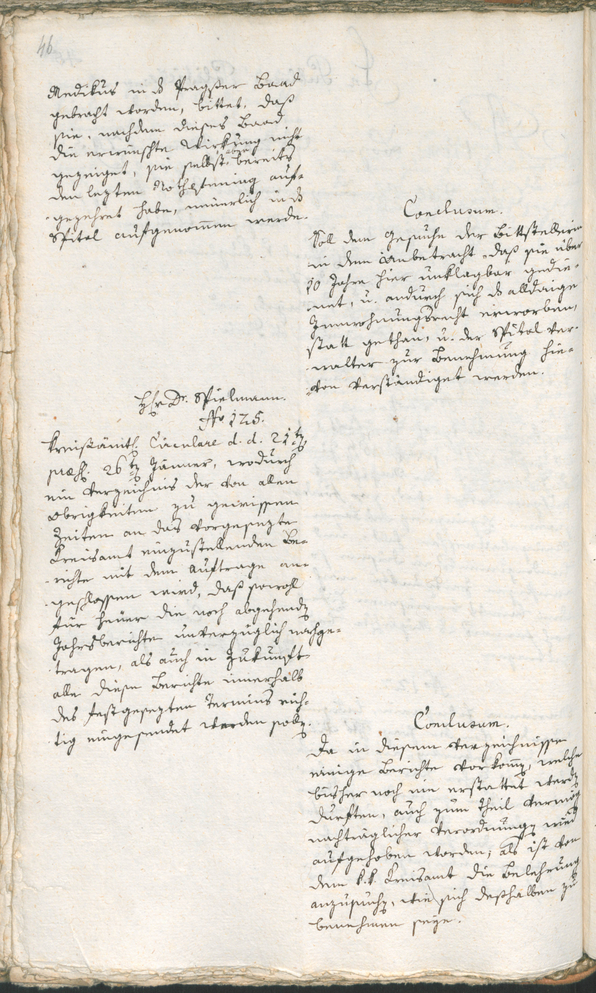 46
Medikus in ds Pragser Baad
gebracht worden, bittet, daß
sie, nachdem dieses Baad
die erwünschte Wirkung nicht
gezeiget, sie selbst bereits
den lezten Nothpfening auf-
gezehret habe, neuerlich in ds
Spital aufgenommen werde.
Conclusum.
Soll dem Gesuche der Bittstellerin
in dem Anbetracht, daß sie über
10 Jahre hier unklagbar gedie-
net, u. andurch sich ds alldaige
Innwohnungsrecht erworben,
statt gethan, u. der Spital Ver-
walter zur Benehmung hie-
von verständiget werden.
Hr Dr. Spielmann.
No 125.
Kreisämtl. Circulare d. d. 21t
26t Jänner, wodurch
ein Verzeichnis der von allen
Obrigkeiten zu gewissen
Zeiten an das vorgesezte
Kreisamt einzustellenden Be-
richte mit dem Auftrage an-
geschlossen wird, daß sowol
für heuer die noch abgehende
Jahrsberichte unverzüglich nachge-
tragen, als auch in Zukunft
alle diese Berichte innerhalb
des festgesezten Termins rich-
tig eingesendet werden solle.
Conclusum.
Da in diesem Verzeichnisse
einige Berichte vorkommen, welche
bisher noch nie erstattet werden
durften, auch zum Theil vermög
nachträglicher Verordnungen wied
aufgehoben worden; als ist von
dem k. k. Kreisamt die Belehrung
anzusuchen, wie sich deßhalben zu
benehmen seye.